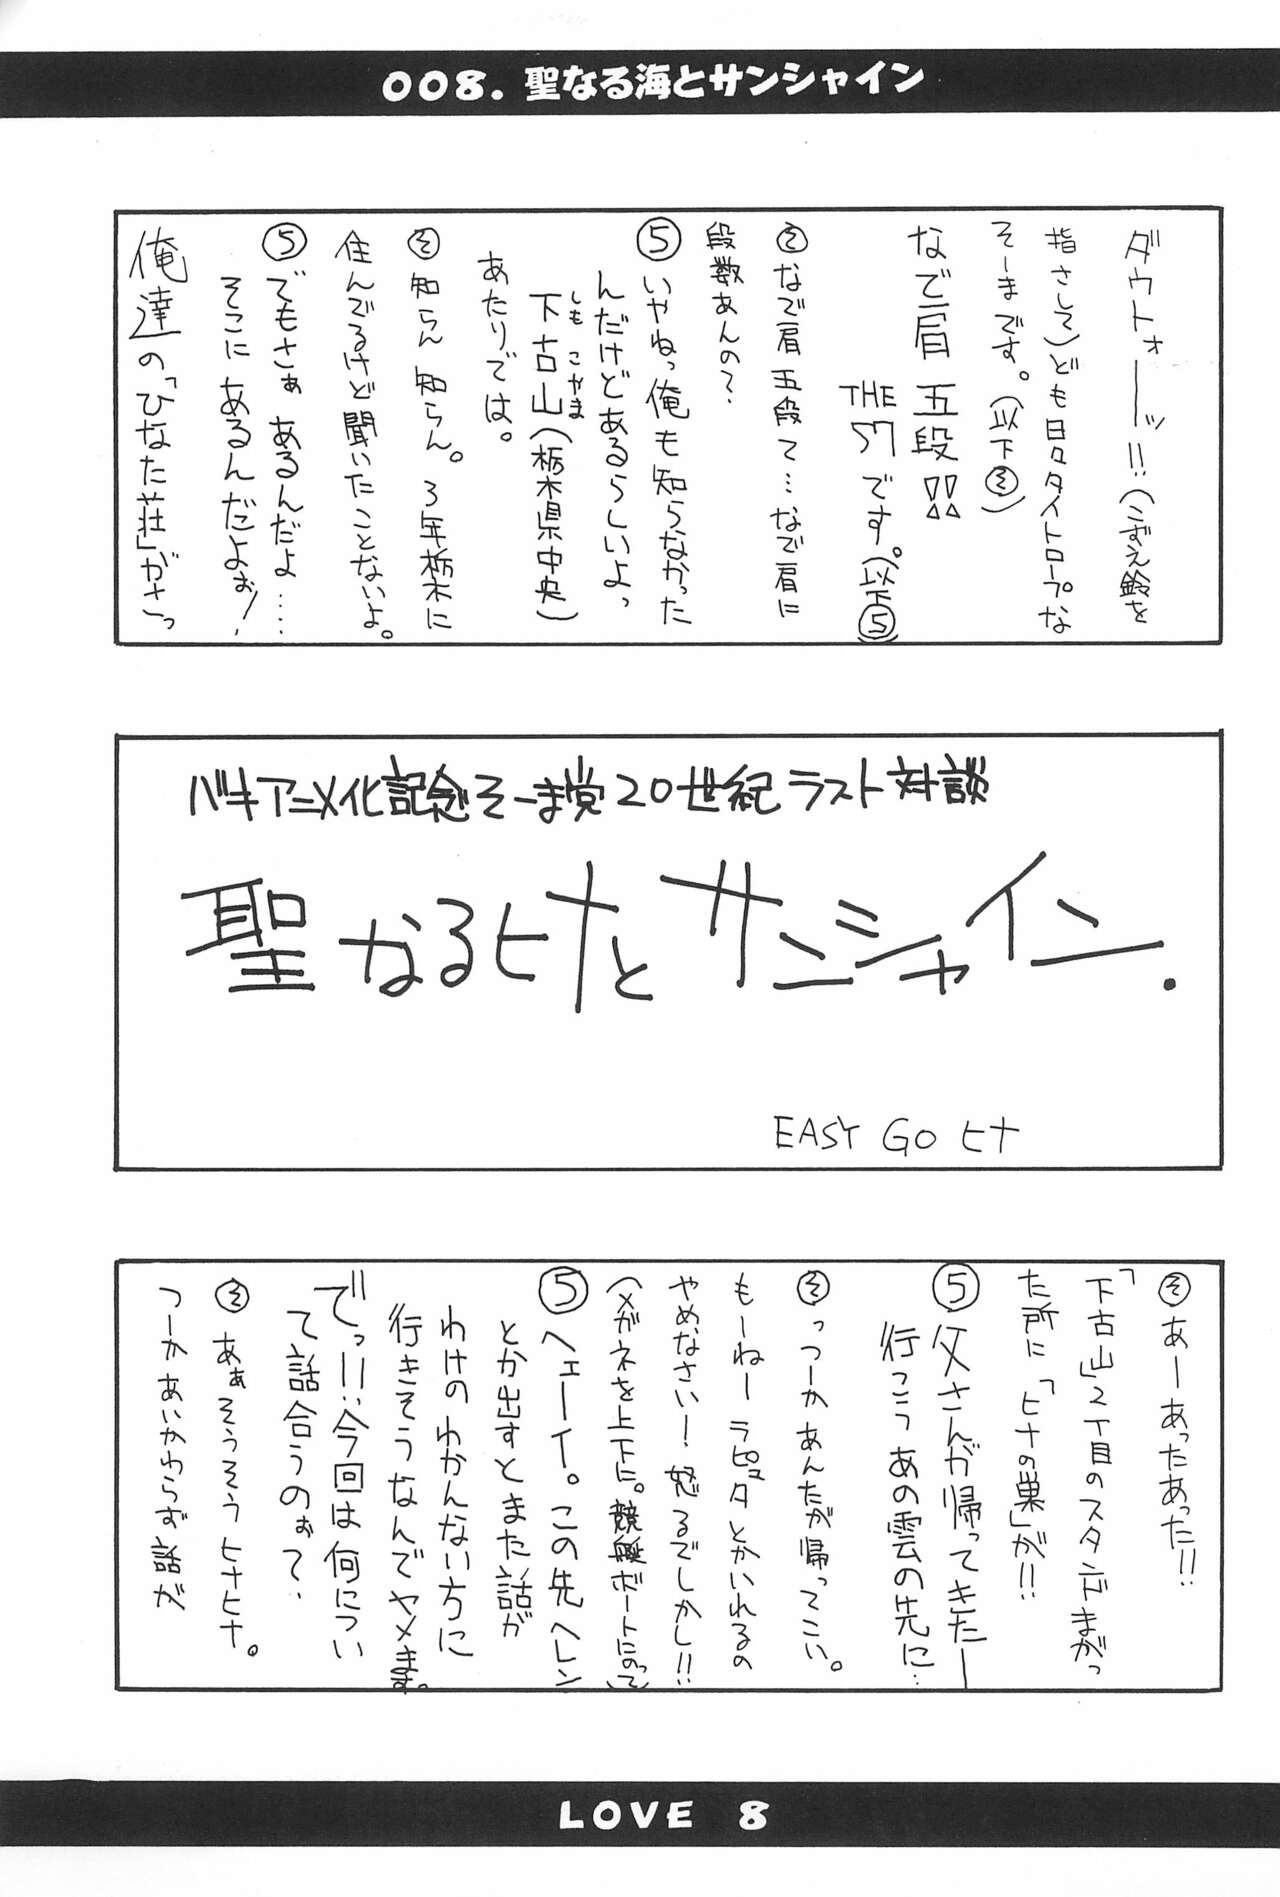 008.聖なる海とサンシャイン
ダウトォーッ!!(こずえ鈴を
指さして)ども日々タイトロープな
そーまです。(以下そ)
なで肩 五段!!
THE 57です。(以下5)
そ なで肩 五段て…なで肩に
段数あんの?
5 いやねっ俺も知らなかった
んだけどあるらしいよっ
下古山(栃木県中央)
しも こやま
あたりでは。
そ 知らん 知らん。3年栃木に
住んでるけど聞いたことないよ。
5 でもさぁ あるんだよ……
そこに あるんだよぉ!
俺達の「ひなた荘」がさっ
バキアニメ化記念そーま党20世紀ラスト対談
聖なるヒナとサンシャイン.
EASY GO ヒナ
そ あーあったあった!!
「下古山」2丁目のスタンドまがっ
た所に「ヒナの巣」が!!
5 父さんが帰ってきたー
行こうあの雲の先に…
そ っつーかあんたが帰ってこい。
もーねー ラピュタとかいれるの
やめなさい!怒るでしかし!!
(メガネを上下に。競艇ボートにのって)
5 ヘェーイ。この先ヘレン
とか出すとまた話が
わけのわかんない方に
行きそうなんでヤメます。
でっ!!今回は何につい
て話合うのぉ?
そ あぁそうそう ヒナヒナ。
つーかあいかわらず話が
LOVE 8